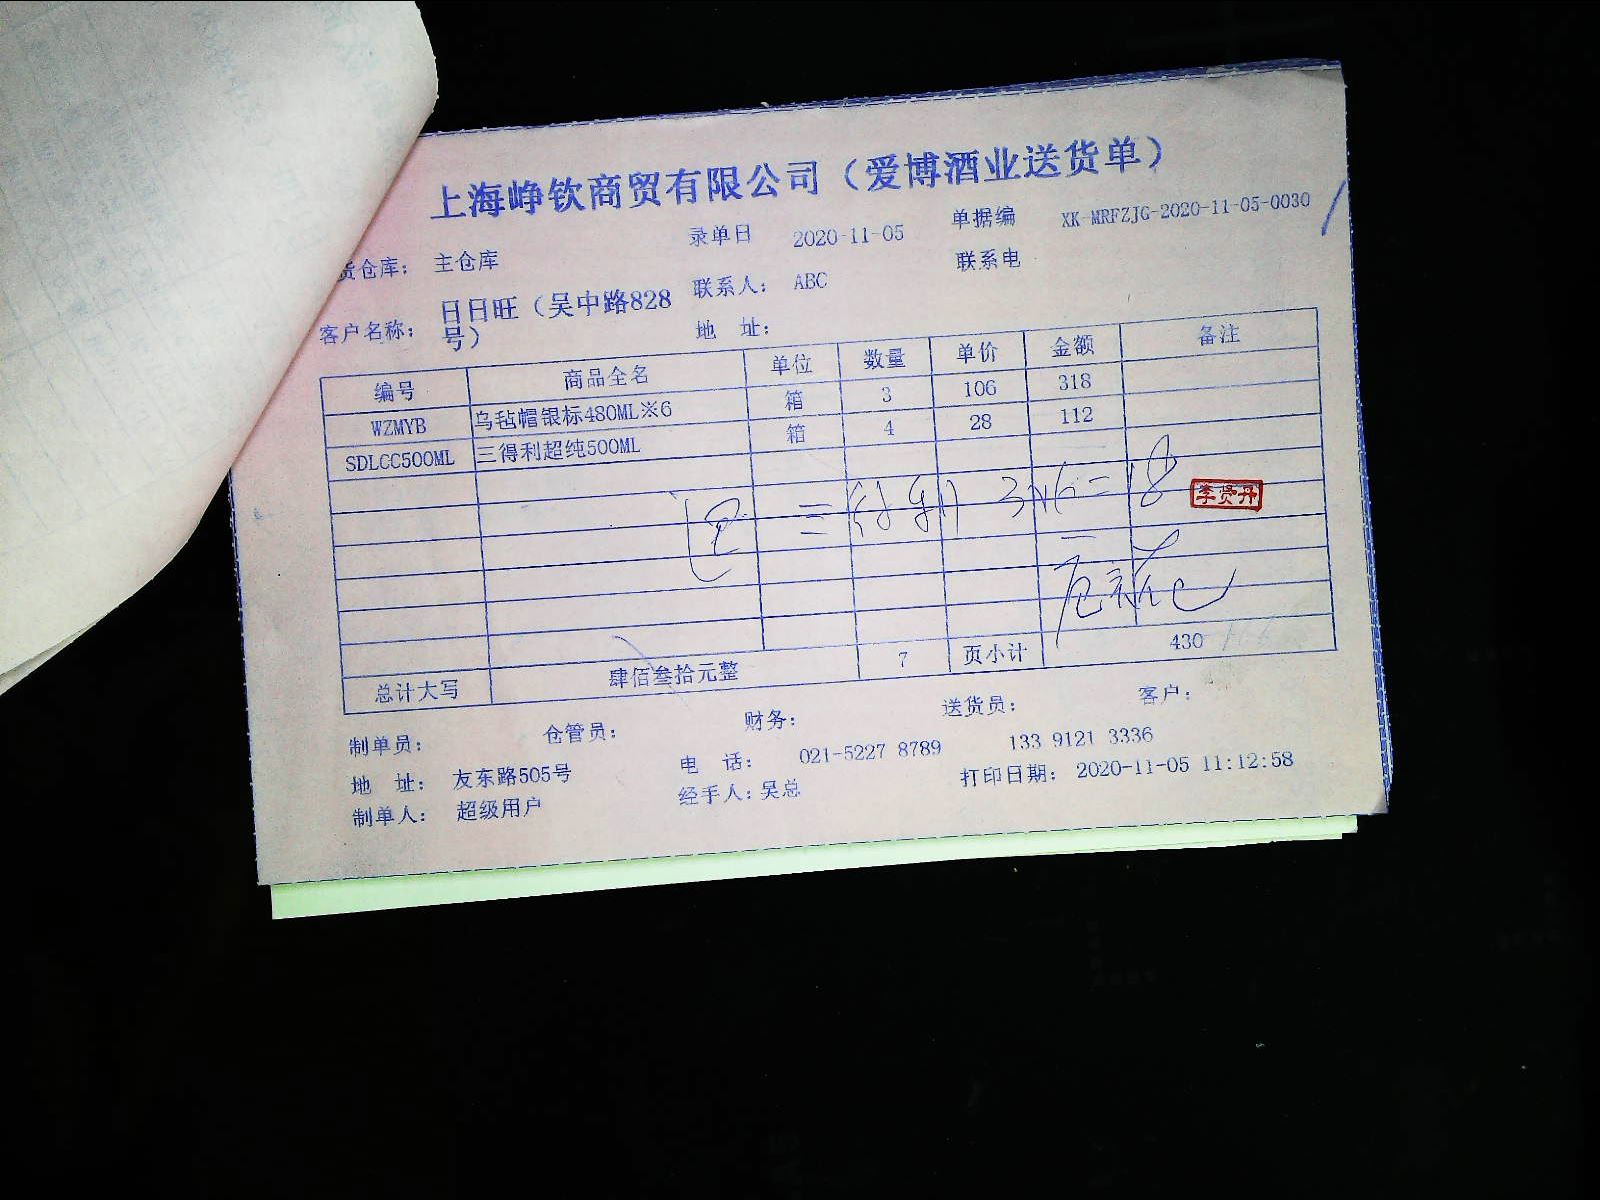 上海峥钦商贸有限公司（爱博酒业送货单）
货仓库： 主仓库 录单日 2020-11-05 单据编 XK-MRFZJG-2020-11-05-0030
客户名称： 日日旺（吴中路828号） 联系人： ABC 联系电
地 址：
编号 商品全名 单位 数量 单价 金额 备注
WZMYB 乌毡帽银标480ML※6 箱 3 106 318
SDLCC500ML 三得利超纯500ML 箱 4 28 112
3×6=18
李贤丹
总计大写 肆佰叁拾元整 7 页小计 430
制单员： 仓管员： 财务： 送货员： 客户：
地 址： 友东路505号 电 话： 021-5227 8789 133 9121 3336
制单人： 超级用户 经手人：吴总 打印日期： 2020-11-05 11:12:58